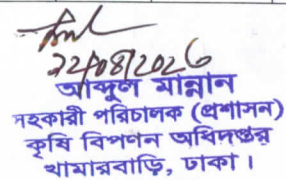 22/08/2026
আব্দুল মান্নান
সহকারী পরিচালক (প্রশাসন)
কৃষি বিপণন অধিদপ্তর
খামারবাড়ি, ঢাকা।